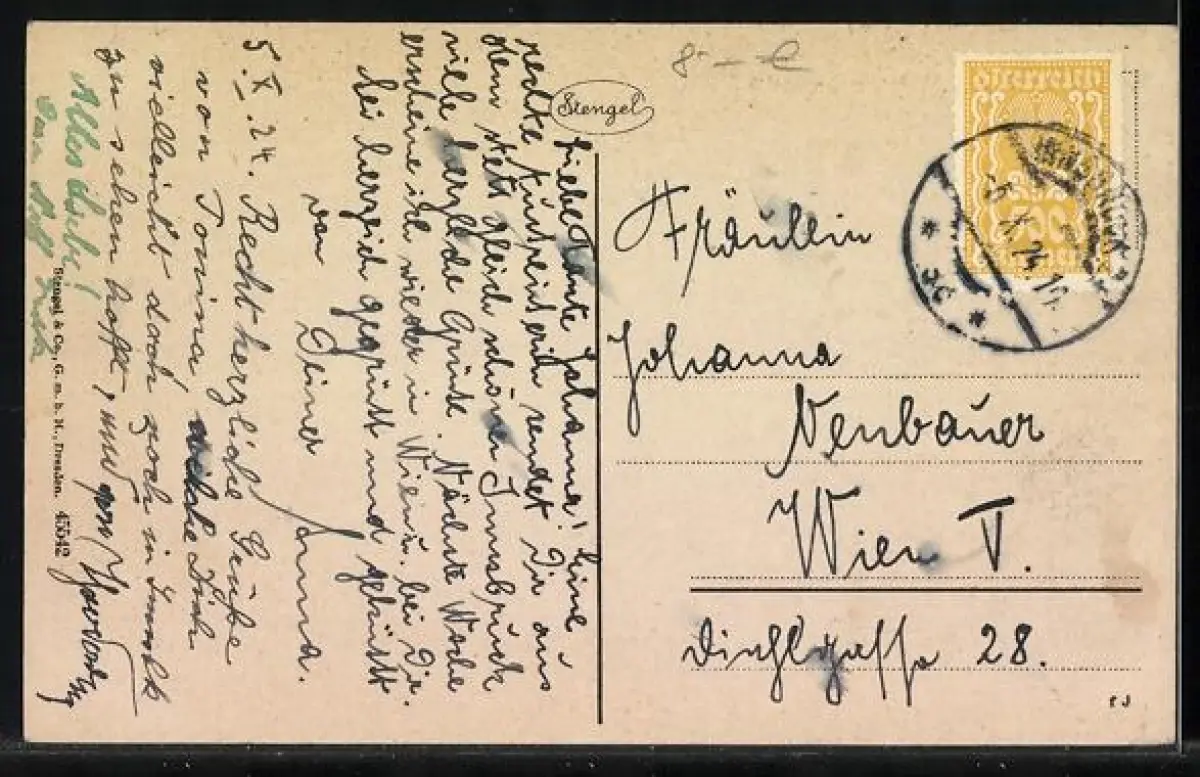 8 - €
Stengel
Österreich
-5.X.24.
Fräullein
Johanna
Neubauer
Wien V.
Diehlgasse 28.
Liebe Tante Johanna! Eine
rechte Ausreiserin sendet Dir aus
dem stets gleich schönen Innsbruck
viele herzliche Grüße. Nächste Woche
erscheine ich wieder in Wien u. bei Dir.
Sei herzlich gegrüßt und geküßt
von Deiner Anna.
5.X.24. Recht herzliche Grüße
von Tonina, welche Dich
vielleicht doch noch in Innsbk
zu sehen hofft, und
Alles Liebe!
Stengel & Co., G. m. b. H., Dresden. 45542